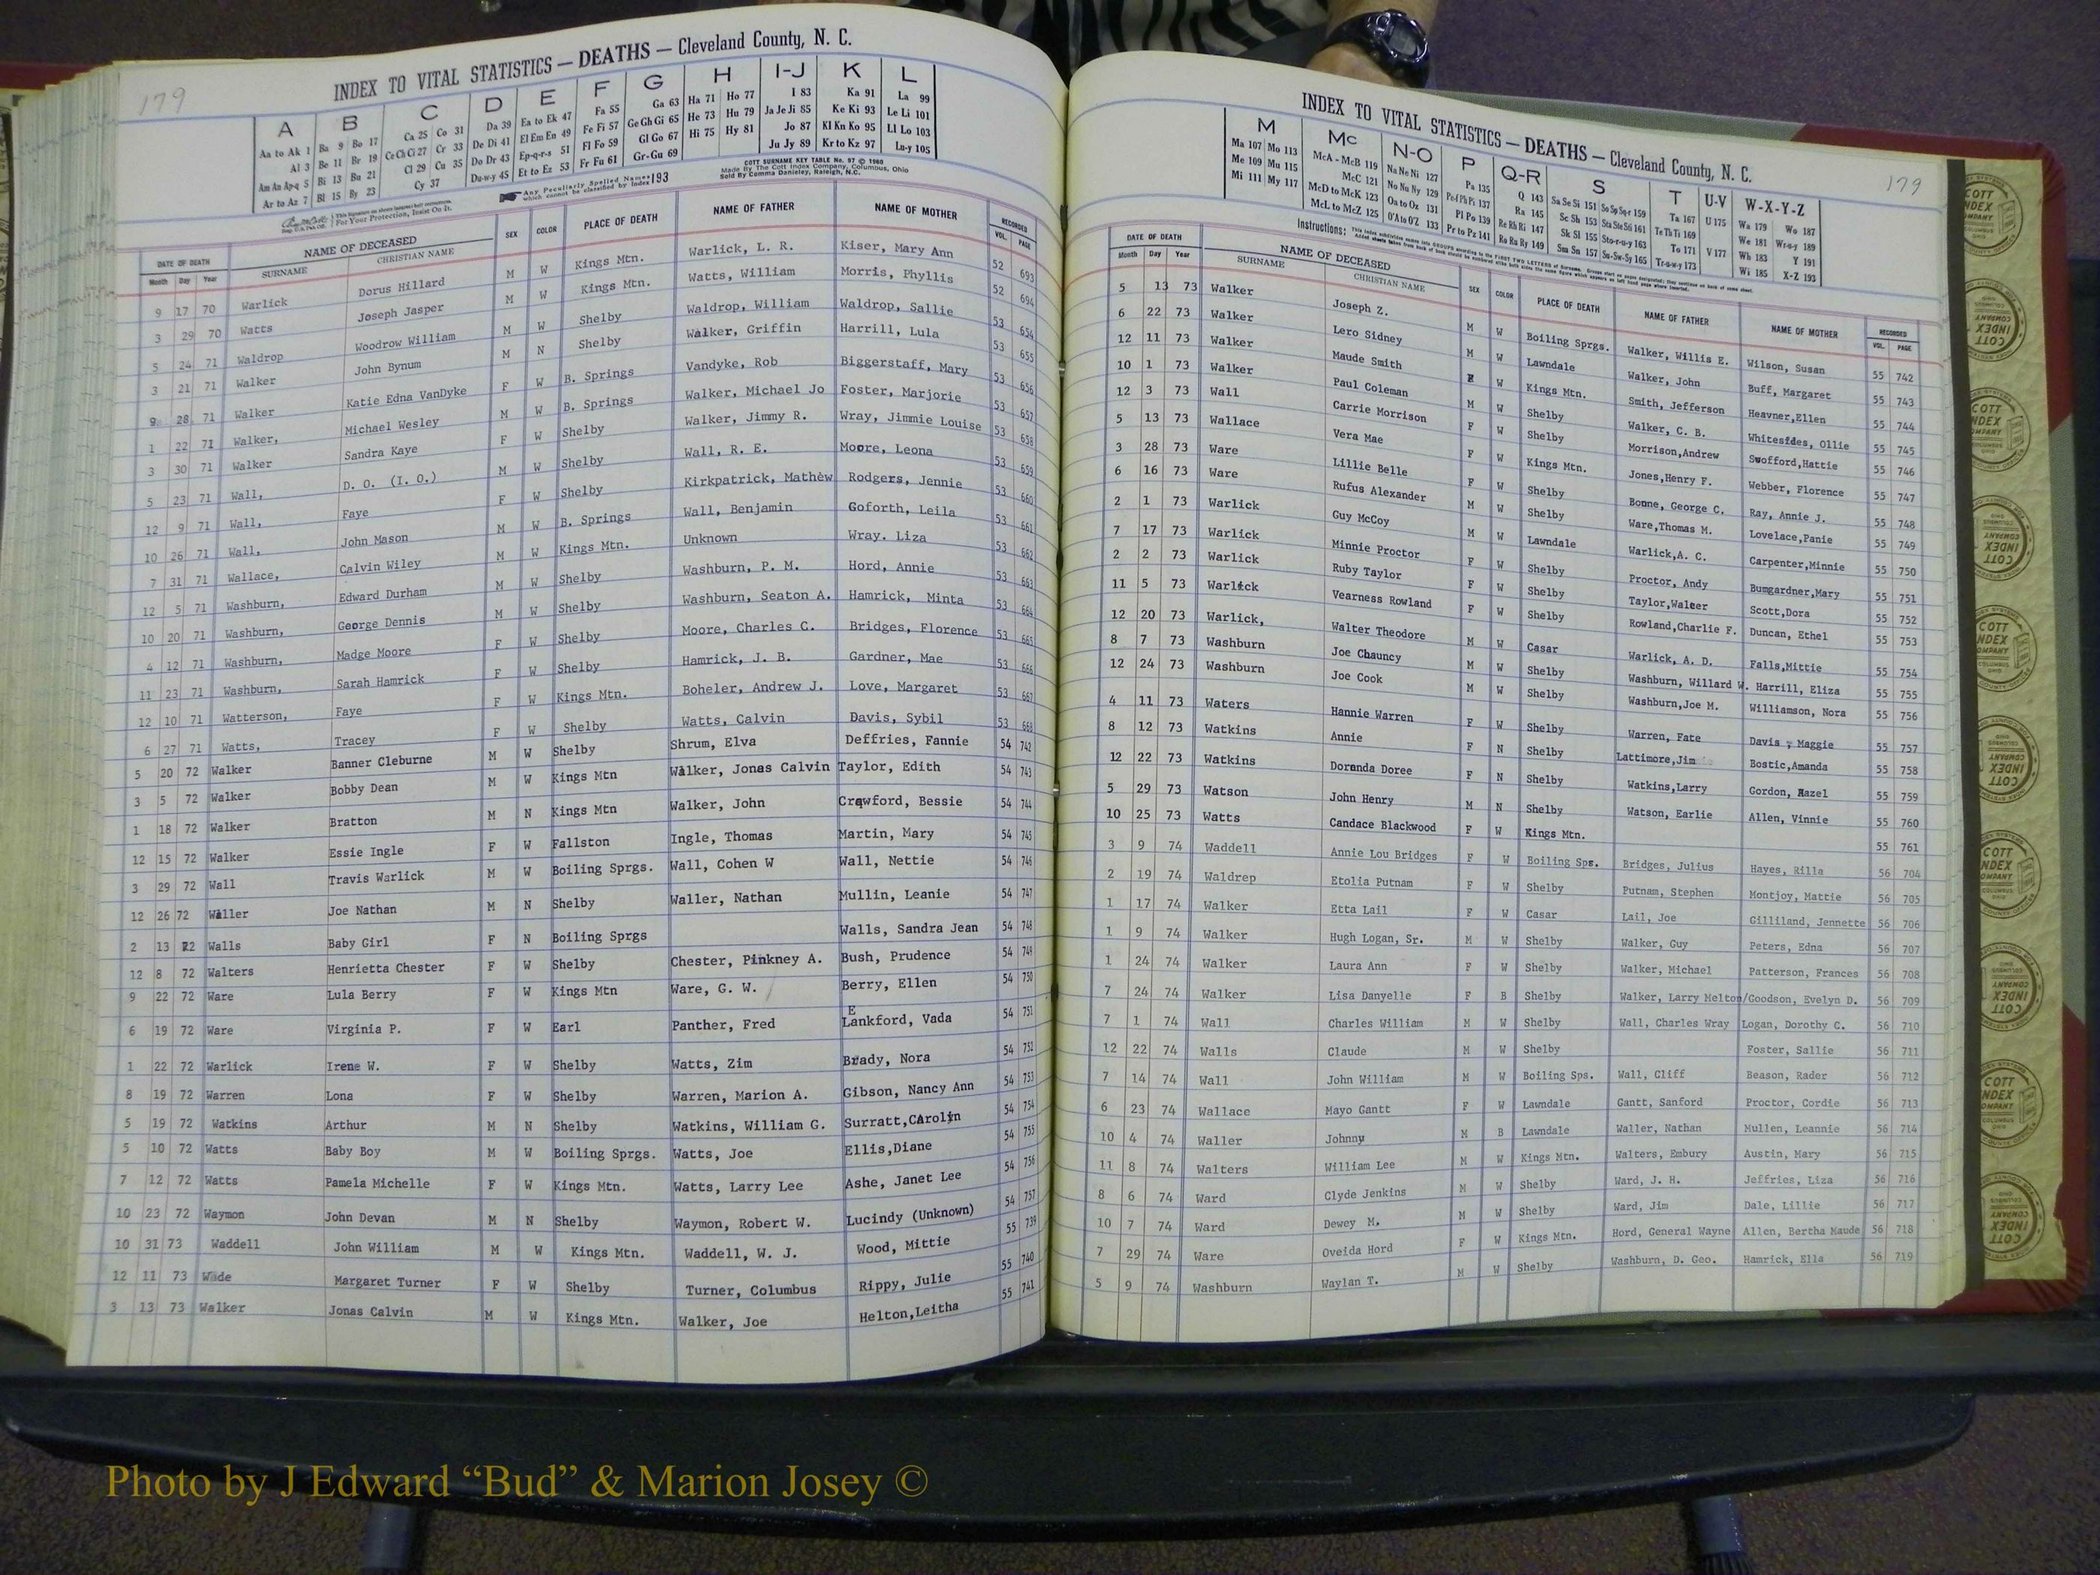 179
INDEX TO VITAL STATISTICS — DEATHS — Cleveland County, N. C.
A B C D E F G H I-J K L
Aa to Ak 1 Ba 9 Bo 17 Ca 25 Co 31 Da 39 Ea to Ek 47 Fa 55 Ga 63 Ha 71 Ho 77 I 83 Ka 91 La 99
Al 3 Be 11 Br 19 Ce Ch Ci 27 Cr 33 De Di 41 El Em En 49 Fe Fi 57 Ge Gh Gi 65 He 73 Hu 79 Ja Je Ji 85 Ke Ki 93 Le Li 101
Am An Ap-q 5 Bi 13 Bu 21 Cl 29 Cu 35 Do Dr 43 Ep-q-r-s 51 Fl Fo 59 Gl Go 67 Hi 75 Hy 81 Jo 87 Kl Kn Ko 95 Ll Lo 103
Ar to Az 7 Bl 15 By 23 Cy 37 Du-w-y 45 Et to Ez 53 Fr Fu 61 Gr-Gu 69 Ju Jy 89 Kr to Kz 97 Lu-y 105
For Your Protection, Insist On It.
Any Peculiarly Spelled Names which cannot be classified by Index 193
COTT SURNAME KEY TABLE No. 97 © 1960
Made By The Cott Index Company, Columbus, Ohio
Sold By Comma Danieley, Raleigh, N.C.
DATE OF DEATH NAME OF DECEASED SEX COLOR PLACE OF DEATH NAME OF FATHER NAME OF MOTHER RECORDED
Month Day Year SURNAME CHRISTIAN NAME VOL. PAGE
9 17 70 Warlick Dorus Hillard M W Kings Mtn. Warlick, L. R. Kiser, Mary Ann 52 693
3 29 70 Watts Joseph Jasper M W Kings Mtn. Watts, William Morris, Phyllis 52 694
5 24 71 Waldrop Woodrow William M W Shelby Waldrop, William Waldrop, Sallie 53 654
3 21 71 Walker John Bynum M N Shelby Walker, Griffin Harrill, Lula 53 655
9 28 71 Walker Katie Edna VanDyke F W B. Springs Vandyke, Rob Biggerstaff, Mary 53 656
1 22 71 Walker, Michael Wesley M W B. Springs Walker, Michael Jo Foster, Marjorie 53 657
3 30 71 Walker Sandra Kaye F W Shelby Walker, Jimmy R. Wray, Jimmie Louise 53 658
5 23 71 Wall, D. O. (I. O.) M W Shelby Wall, R. E. Moore, Leona 53 659
12 9 71 Wall, Faye F W Shelby Kirkpatrick, Mathew Rodgers, Jennie 53 660
10 26 71 Wall, John Mason M W B. Springs Wall, Benjamin Goforth, Leila 53 661
7 31 71 Wallace, Calvin Wiley M W Kings Mtn. Unknown Wray. Liza 53 662
12 5 71 Washburn, Edward Durham M W Shelby Washburn, P. M. Hord, Annie 53 663
10 20 71 Washburn, George Dennis M W Shelby Washburn, Seaton A. Hamrick, Minta 53 664
4 12 71 Washburn, Madge Moore F W Shelby Moore, Charles C. Bridges, Florence 53 665
11 23 71 Washburn, Sarah Hamrick F W Shelby Hamrick, J. B. Gardner, Mae 53 666
12 10 71 Watterson, Faye F W Kings Mtn. Boheler, Andrew J. Love, Margaret 53 667
6 27 71 Watts, Tracey F W Shelby Watts, Calvin Davis, Sybil 53 668
5 20 72 Walker Banner Cleburne M W Shelby Shrum, Elva Deffries, Fannie 54 742
3 5 72 Walker Bobby Dean M W Kings Mtn Walker, Jonas Calvin Taylor, Edith 54 743
1 18 72 Walker Bratton M N Kings Mtn Walker, John Crawford, Bessie 54 744
12 15 72 Walker Essie Ingle F W Fallston Ingle, Thomas Martin, Mary 54 745
3 29 72 Wall Travis Warlick M W Boiling Sprgs. Wall, Cohen W Wall, Nettie 54 746
12 26 72 Waller Joe Nathan M N Shelby Waller, Nathan Mullin, Leanie 54 747
2 13 72 Walls Baby Girl F N Boiling Sprgs Walls, Sandra Jean 54 748
12 8 72 Walters Henrietta Chester F W Shelby Chester, Pinkney A. Bush, Prudence 54 749
9 22 72 Ware Lula Berry F W Kings Mtn Ware, G. W. Berry, Ellen 54 750
6 19 72 Ware Virginia P. F W Earl Panther, Fred Lankford, Vada 54 751
1 22 72 Warlick Irene W. F W Shelby Watts, Zim Brady, Nora 54 752
8 19 72 Warren Lona F W Shelby Warren, Marion A. Gibson, Nancy Ann 54 753
5 19 72 Watkins Arthur M N Shelby Watkins, William G. Surratt,CArolyn 54 754
5 10 72 Watts Baby Boy M W Boiling Sprgs. Watts, Joe Ellis,Diane 54 755
7 12 72 Watts Pamela Michelle F W Kings Mtn. Watts, Larry Lee Ashe, Janet Lee 54 756
10 23 72 Waymon John Devan M N Shelby Waymon, Robert W. Lucindy (Unknown) 54 757
10 31 73 Waddell John William M W Kings Mtn. Waddell, W. J. Wood, Mittie 55 739
12 11 73 Wade Margaret Turner F W Shelby Turner, Columbus Rippy, Julie 55 740
3 13 73 Walker Jonas Calvin M W Kings Mtn. Walker, Joe Helton,Leitha 55 741
INDEX TO VITAL STATISTICS — DEATHS — Cleveland County, N. C.
179
M Mc N-O P Q-R S T U-V W-X-Y-Z
Ma 107 Mo 113 McA - McB 119 Na Ne Ni 127 Pa 135 Q 143 Sa Se Si 151 So Sp Sq-r 159 Ta 167 U 175 Wa 179 Wo 187
Me 109 Mu 115 McC 121 No Nu Ny 129 Pe-f Ph Pi 137 Ra 145 Sc Sh 153 Sta Ste Sti 161 Te Th Ti 169 We 181 Wr-u-y 189
Mi 111 My 117 McD to McK 123 Oa to Oz 131 Pl Po 139 Re Rh Ri 147 Sk Sl 155 Sto-r-u-y 163 To 171 V 177 Wh 183 Y 191
McL to McZ 125 O'A to O'Z 133 Pr to Pz 141 Ro Ru Ry 149 Sm Sn 157 Su-Sw-Sy 165 Tr-u-w-y 173 Wi 185 X-Z 193
Instructions:
DATE OF DEATH NAME OF DECEASED SEX COLOR PLACE OF DEATH NAME OF FATHER NAME OF MOTHER RECORDED
Month Day Year SURNAME CHRISTIAN NAME VOL. PAGE
5 13 73 Walker Joseph Z. M W Boiling Sprgs. Walker, Willis E. Wilson, Susan 55 742
6 22 73 Walker Lero Sidney M W Lawndale Walker, John Buff, Margaret 55 743
12 11 73 Walker Maude Smith W Kings Mtn. Smith, Jefferson Heavner,Ellen 55 744
10 1 73 Walker Paul Coleman M W Shelby Walker, C. B. Whitesides, Ollie 55 745
12 3 73 Wall Carrie Morrison F W Shelby Morrison,Andrew Swofford,Hattie 55 746
5 13 73 Wallace Vera Mae F W Kings Mtn. Jones,Henry F. Webber, Florence 55 747
3 28 73 Ware Lillie Belle F W Shelby Bonne, George C. Ray, Annie J. 55 748
6 16 73 Ware Rufus Alexander M W Shelby Ware,Thomas M. Lovelace,Panie 55 749
2 1 73 Warlick Guy McCoy M W Lawndale Warlick,A. C. Carpenter,Minnie 55 750
7 17 73 Warlick Minnie Proctor F W Shelby Proctor, Andy Bumgardner,Mary 55 751
2 2 73 Warlick Ruby Taylor F W Shelby Taylor,Walter Scott,Dora 55 752
11 5 73 Warlick Vearness Rowland F W Shelby Rowland,Charlie F. Duncan, Ethel 55 753
12 20 73 Warlick, Walter Theodore M W Casar Warlick, A. D. Falls,Mittie 55 754
8 7 73 Washburn Joe Chauncy M W Shelby Washburn, Willard W. Harrill, Eliza 55 755
12 24 73 Washburn Joe Cook M W Shelby Washburn,Joe M. Williamson, Nora 55 756
4 11 73 Waters Hannie Warren F W Shelby Warren, Fate Davis , Maggie 55 757
8 12 73 Watkins Annie F N Shelby Lattimore,Jim Bostic,Amanda 55 758
12 22 73 Watkins Doranda Doree F N Shelby Watkins,Larry Gordon, Hazel 55 759
5 29 73 Watson John Henry M N Shelby Watson, Earlie Allen, Vinnie 55 760
10 25 73 Watts Candace Blackwood F W Kings Mtn. 55 761
3 9 74 Waddell Annie Lou Bridges F W Boiling Sps. Bridges, Julius Hayes, Rilla 56 704
2 19 74 Waldrep Etolia Putnam F W Shelby Putnam, Stephen Montjoy, Mattie 56 705
1 17 74 Walker Etta Lail F W Casar Lail, Joe Gilliland, Jennette 56 706
1 9 74 Walker Hugh Logan, Sr. M W Shelby Walker, Guy Peters, Edna 56 707
1 24 74 Walker Laura Ann F W Shelby Walker, Michael Patterson, Frances 56 708
7 24 74 Walker Lisa Danyelle F B Shelby Walker, Larry Melton/Goodson, Evelyn D. 56 709
7 1 74 Wall Charles William M W Shelby Wall, Charles Wray Logan, Dorothy C. 56 710
12 22 74 Walls Claude M W Shelby Foster, Sallie 56 711
7 14 74 Wall John William M W Boiling Sps. Wall, Cliff Beason, Rader 56 712
6 23 74 Wallace Mayo Gantt F W Lawndale Gantt, Sanford Proctor, Cordie 56 713
10 4 74 Waller Johnny M B Lawndale Waller, Nathan Mullen, Leannie 56 714
11 8 74 Walters William Lee M W Kings Mtn. Walters, Embury Austin, Mary 56 715
8 6 74 Ward Clyde Jenkins M W Shelby Ward, J. H. Jeffries, Liza 56 716
10 7 74 Ward Dewey M. M W Shelby Ward, Jim Dale, Lillie 56 717
7 29 74 Ware Oveida Hord F W Kings Mtn. Hord, General Wayne Allen, Bertha Maude 56 718
5 9 74 Washburn Waylan T. M W Shelby Washburn, D. Geo. Hamrick, Ella 56 719
Photo by J Edward “Bud” & Marion Josey ©